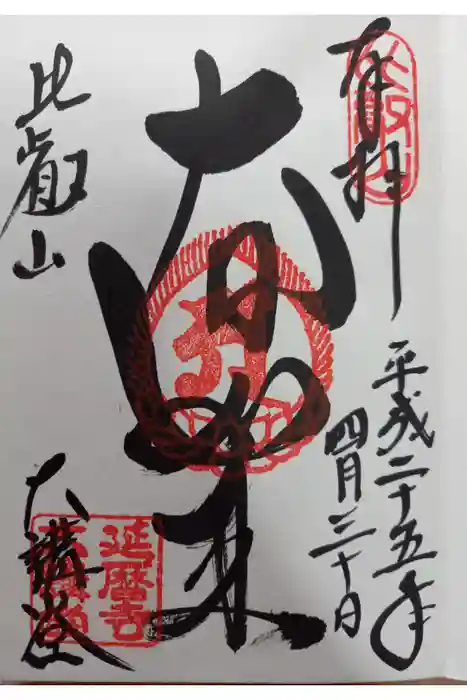 奉拝
平成二十五年
四月三十日
大日如来
比叡山
大講堂
延暦寺